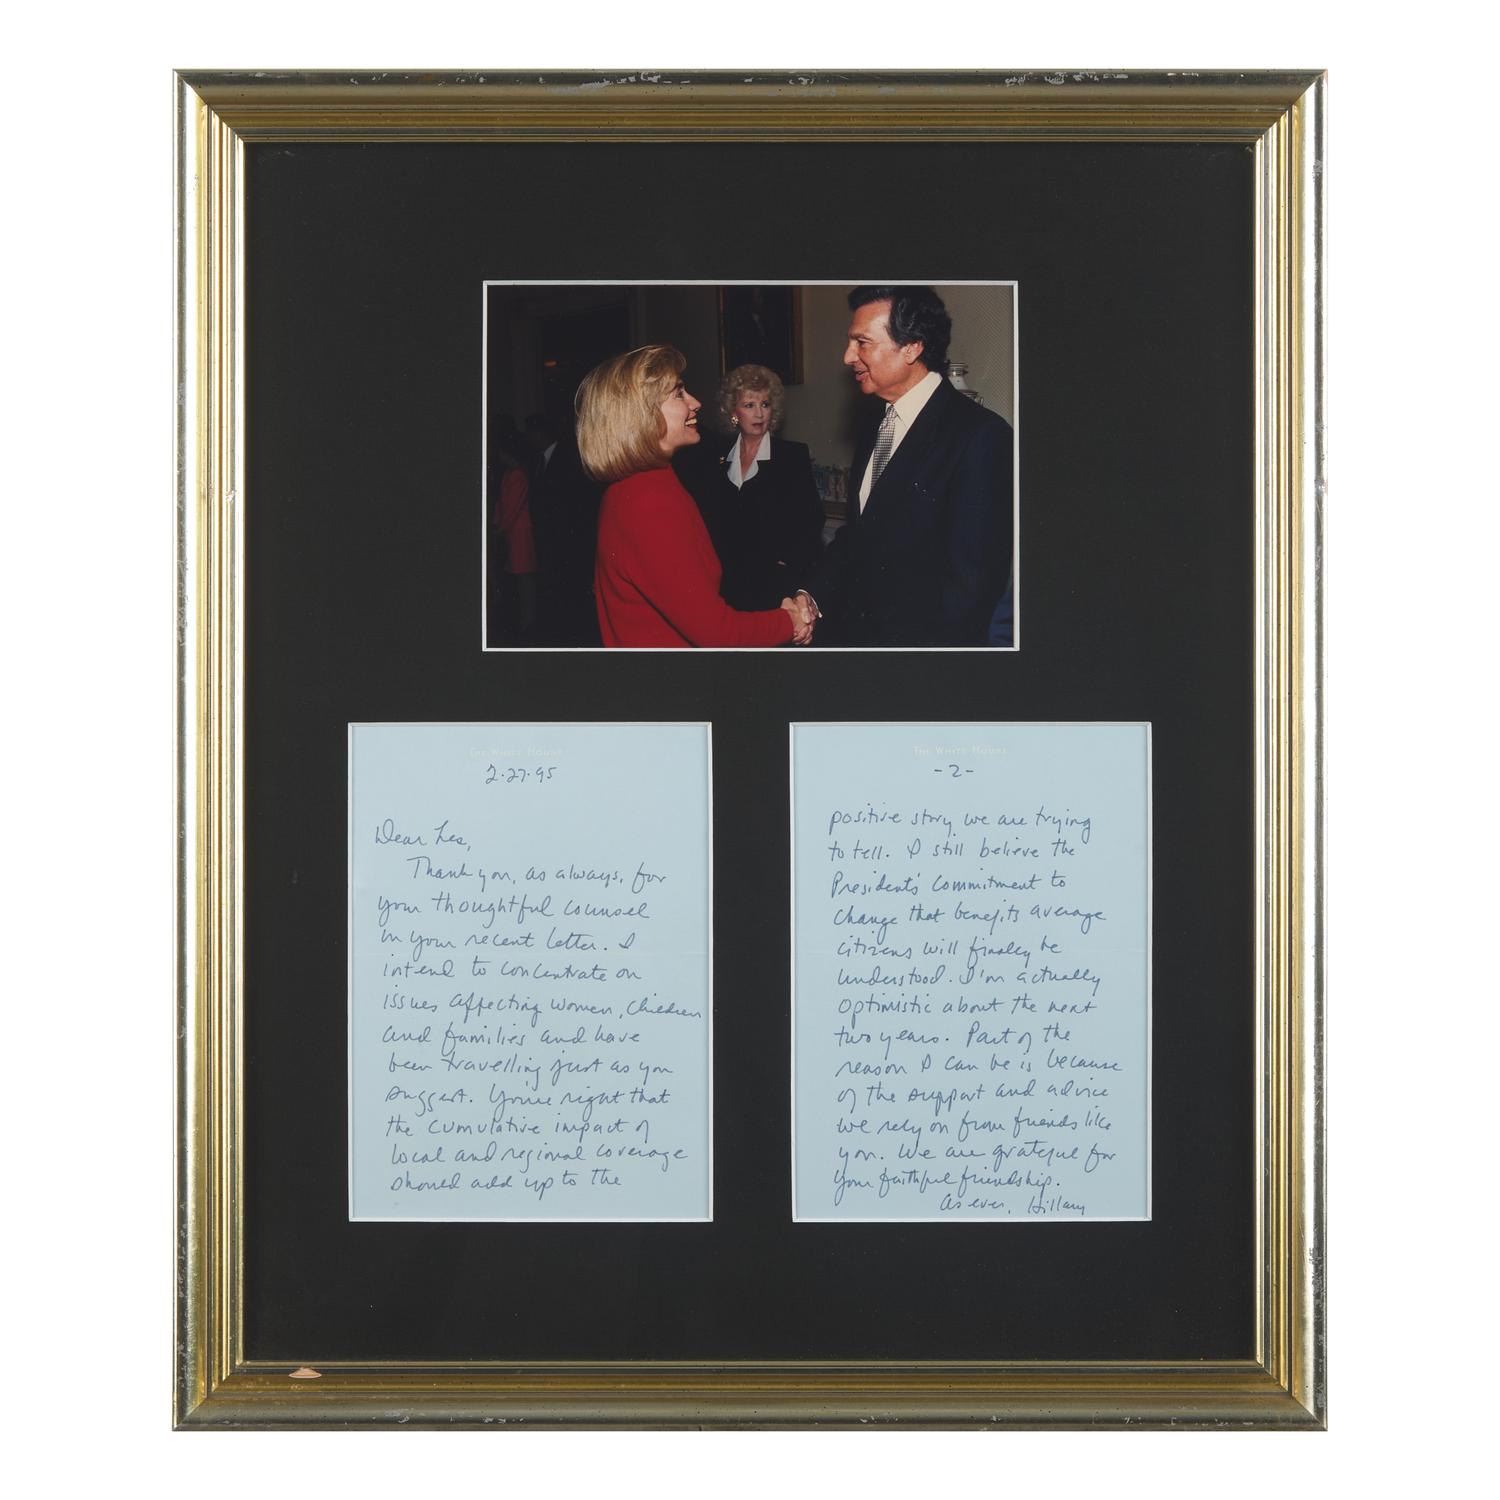 THE WHITE HOUSE
2.27.95
Dear Les,
Thank you, as always, for
your thoughtful counsel
in your recent letter. I
intend to concentrate on
issues affecting women, children
and families and have
been travelling just as you
suggest. You're right that
the cumulative impact of
local and regional coverage
should add up to the
THE WHITE HOUSE
-2-
positive story we are trying
to tell. I still believe the
President's commitment to
change that benefits average
citizens will finally be
understood. I'm actually
optimistic about the next
two years. Part of the
reason I can be is because
of the support and advice
we rely on from friends like
you. We are grateful for
your faithful friendship.
As ever, Hillary